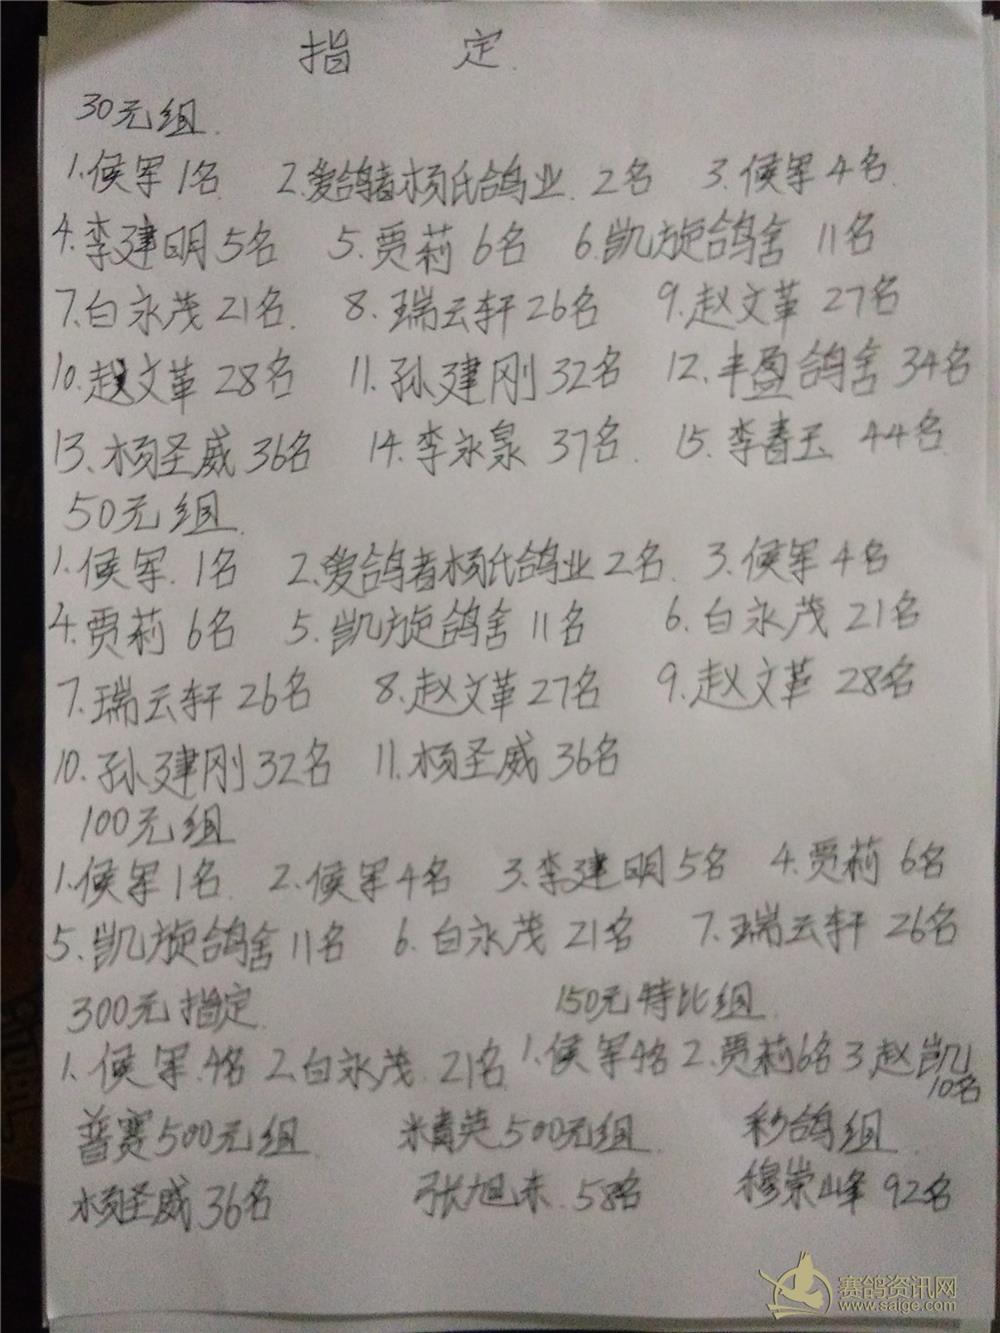 指 定
30元组
1.候军1名 2.爱鸽者杨氏鸽业 2名 3.候军4名
4.李建明5名 5.贾莉6名 6.凯旋鸽舍 11名
7.白永茂21名 8.瑞云轩26名 9.赵文革27名
10.赵文革28名 11.孙建刚32名 12.丰盈鸽舍34名
13.杨圣威36名 14.李永泉37名 15.李春玉44名
50元组
1.候军.1名 2.爱鸽者杨氏鸽业2名 3.候军4名
4.贾莉6名 5.凯旋鸽舍11名 6.白永茂21名
7.瑞云轩26名 8.赵文革27名 9.赵文革28名
10.孙建刚32名 11.杨圣威36名
100元组
1.候军1名 2.候军4名 3.李建明5名 4.贾莉6名
5.凯旋鸽舍11名 6.白永茂21名 7.瑞云轩26名
300元指定 150元特比组
1.候军.4名 2.白永茂.21名 1.候军4名 2.贾莉6名 3.赵凯10名
普赛500元组 精英500元组 秒鸽组
杨圣威36名 张旭东.58名 穆崇峰92名
赛鸽资讯网
www.saige.com